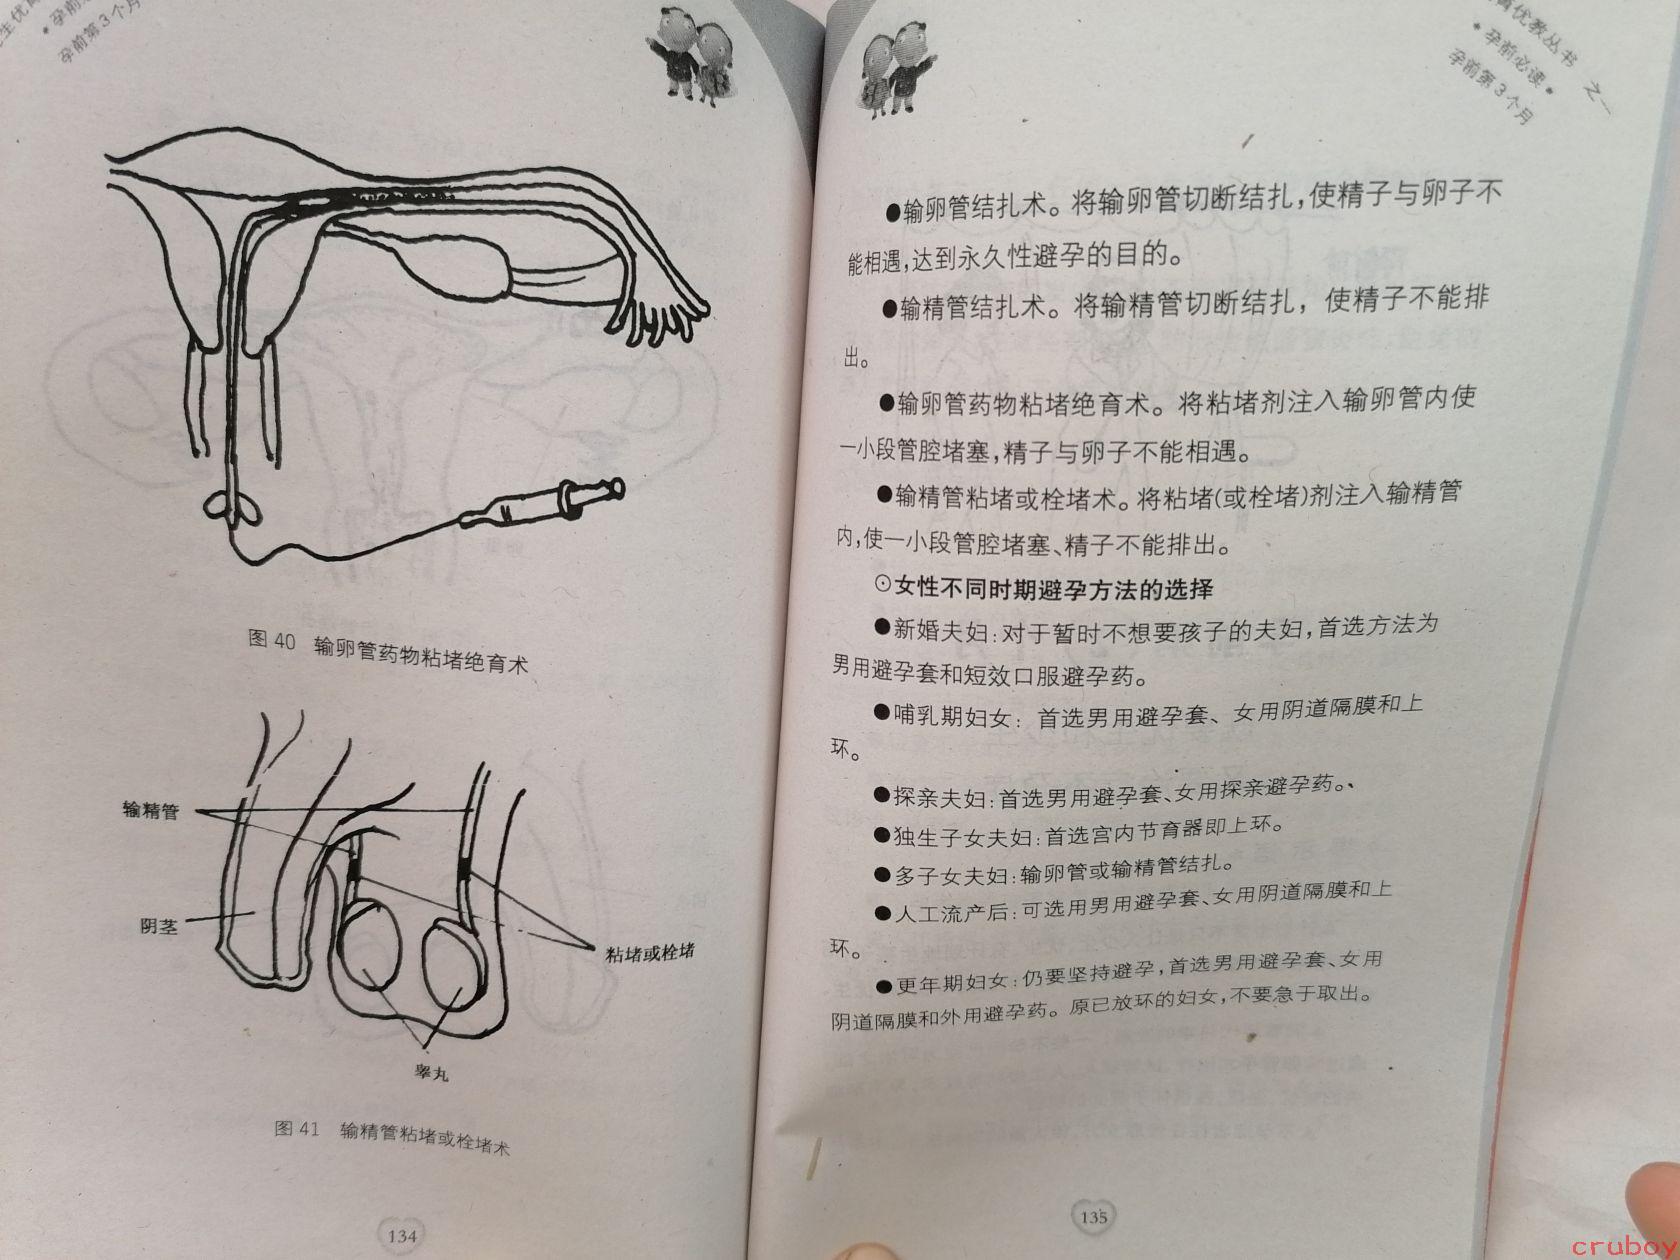 孕前第3个月
图 40 输卵管药物粘堵绝育术
输精管
阴茎
粘堵或栓堵
睾丸
图 41 输精管粘堵或栓堵术
134
育优教丛书 之一
•孕前必读•
孕前第3个月
●输卵管结扎术。将输卵管切断结扎,使精子与卵子不
能相遇,达到永久性避孕的目的。
●输精管结扎术。将输精管切断结扎，使精子不能排
出。
●输卵管药物粘堵绝育术。将粘堵剂注入输卵管内使
一小段管腔堵塞,精子与卵子不能相遇。
●输精管粘堵或栓堵术。将粘堵(或栓堵)剂注入输精管
内,使一小段管腔堵塞、精子不能排出。
⊙女性不同时期避孕方法的选择
●新婚夫妇:对于暂时不想要孩子的夫妇,首选方法为
男用避孕套和短效口服避孕药。
●哺乳期妇女：首选男用避孕套、女用阴道隔膜和上
环。
●探亲夫妇:首选男用避孕套、女用探亲避孕药。
●独生子女夫妇:首选宫内节育器即上环。
●多子女夫妇:输卵管或输精管结扎。
●人工流产后:可选用男用避孕套、女用阴道隔膜和上
环。
●更年期妇女:仍要坚持避孕,首选男用避孕套、女用
阴道隔膜和外用避孕药。原已放环的妇女,不要急于取出。
135
cruboy